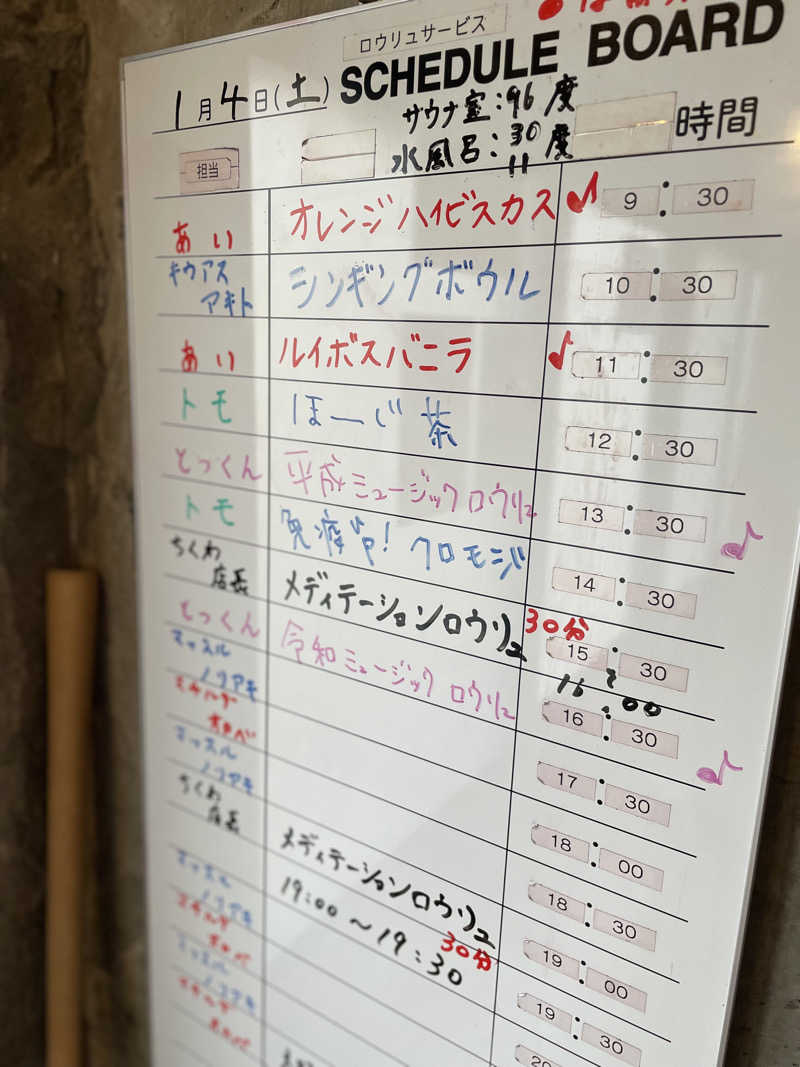 ロウリュサービス
SCHEDULE BOARD
1月4日(土)
サウナ室:96度
水風呂:30度
11
時間
担当
あい オレンジハイビスカス 9:30
キウアス
アキト シンギングボウル 10:30
あい ルイボスバニラ 11:30
トモ ほーじ茶 12:30
とっくん 平成ミュージックロウリュ 13:30
トモ 免疫UP!クロモジ 14:30
ちくわ
店長 メディテーションロウリュ 30分 15:30
~16:00
とっくん 令和ミュージックロウリュ 16:30
マッスル
ノリアキ 17:30
18:00
マッスル
ノリアキ 18:30
ちくわ
店長 メディテーションロウリュ 19:00
19:00~19:30 30分
マッスル
ノリアキ 19:30
20
マッスル
ノリアキ